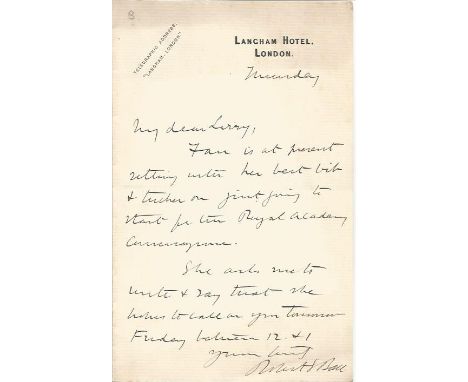 8
TELEGRAPHIC ADDRESS,
"LANGHAM, LONDON."
LANGHAM HOTEL,
LONDON.
Thursday
My dear Lizzy,
Fan is at present
getting into her best bib
& tucker on just going to
start for the Royal Academy
She asks me to
write & say that she
hopes to call on you tomorrow
Friday between 12 & 1
yours
Robert S Ball